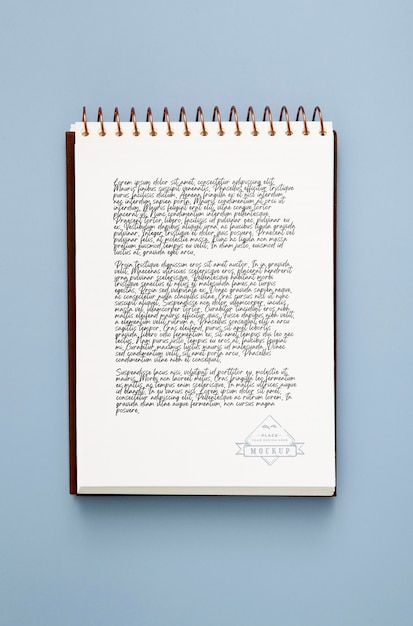 Lorem ipsum dolor sit amet, consectetur adipiscing elit.
Mauris finibus suscipit venenatis. Phasellus efficitur tristique
purus facilisis dictum. Aenean fringilla ex et nisi interdum,
nec interdum sapien mattis. Mauris condimentum at orci ut
tincidunt. Morbi feugiat erat elit, vitae congue tortor
placerat at. Nunc at ornare dolor, interdum pellentesque.
Praesent tortor libero, dictum at placerat ac, pulvinar eu
ex. Vestibulum dapibus aliquet urna, ac faucibus ligula gravida
pulvinar. Integer tristique dui quis posuere. Praesent vel
pulvinar felis, at molestie massa. Nunc ac ligula non massa
pretium euismod tempus vel diam. In interdum euismod ut
luctus at, gravida eget arcu.
Proin tristique dignissim eros sit amet auctor. In in gravida
velit. Maecenas ultrices scelerisque eros, placerat hendrerit
urna pulvinar scelerisque. Pellentesque habitant morbi
tristique senectus et netus et malesuada fames ac turpis
egestas. Proin sed vulputate ex. Cras gravida sapien neque,
ac consectetur nulla convallis vitae. Cras cursus nisl ut nunc
suscipit aliquet. Suspendisse non dolor ullamcorper, iaculis
massa vel, ullamcorper tortor. Curabitur tincidunt eros nibh,
mattis eleifend mauris efficitur quis. Fusce dapibus nibh velit,
a elementum velit rutrum a. Phasellus consequat elit a arcu
sagittis tempor. Cras eleifend, purus sit amet lobortis
gravida, libero odio fermentum ex, sit amet tempus elit leo nec
lectus. Nam purus justo, tempus eu eros at, luctus commodo
mi. Curabitur maximus luctus mauris id malesuada. Donec
sed condimentum velit, sit amet mattis arcu. Phasellus
condimentum nibh et consequat.
Suspendisse lacus nisi, volutpat id porttitor eu, molestie ut
mauris. Morbi non laoreet metus. Cras fringilla leo fermentum
ex mattis, sit amet tempus velit scelerisque. Vivamus augue
id blandit. In eu varius nisl. Lorem ipsum dolor sit amet. In
gravida diam vitae augue fermentum, non cursus magna
posuere.
PLACE
YOUR DESIGN HERE
MOCKUP